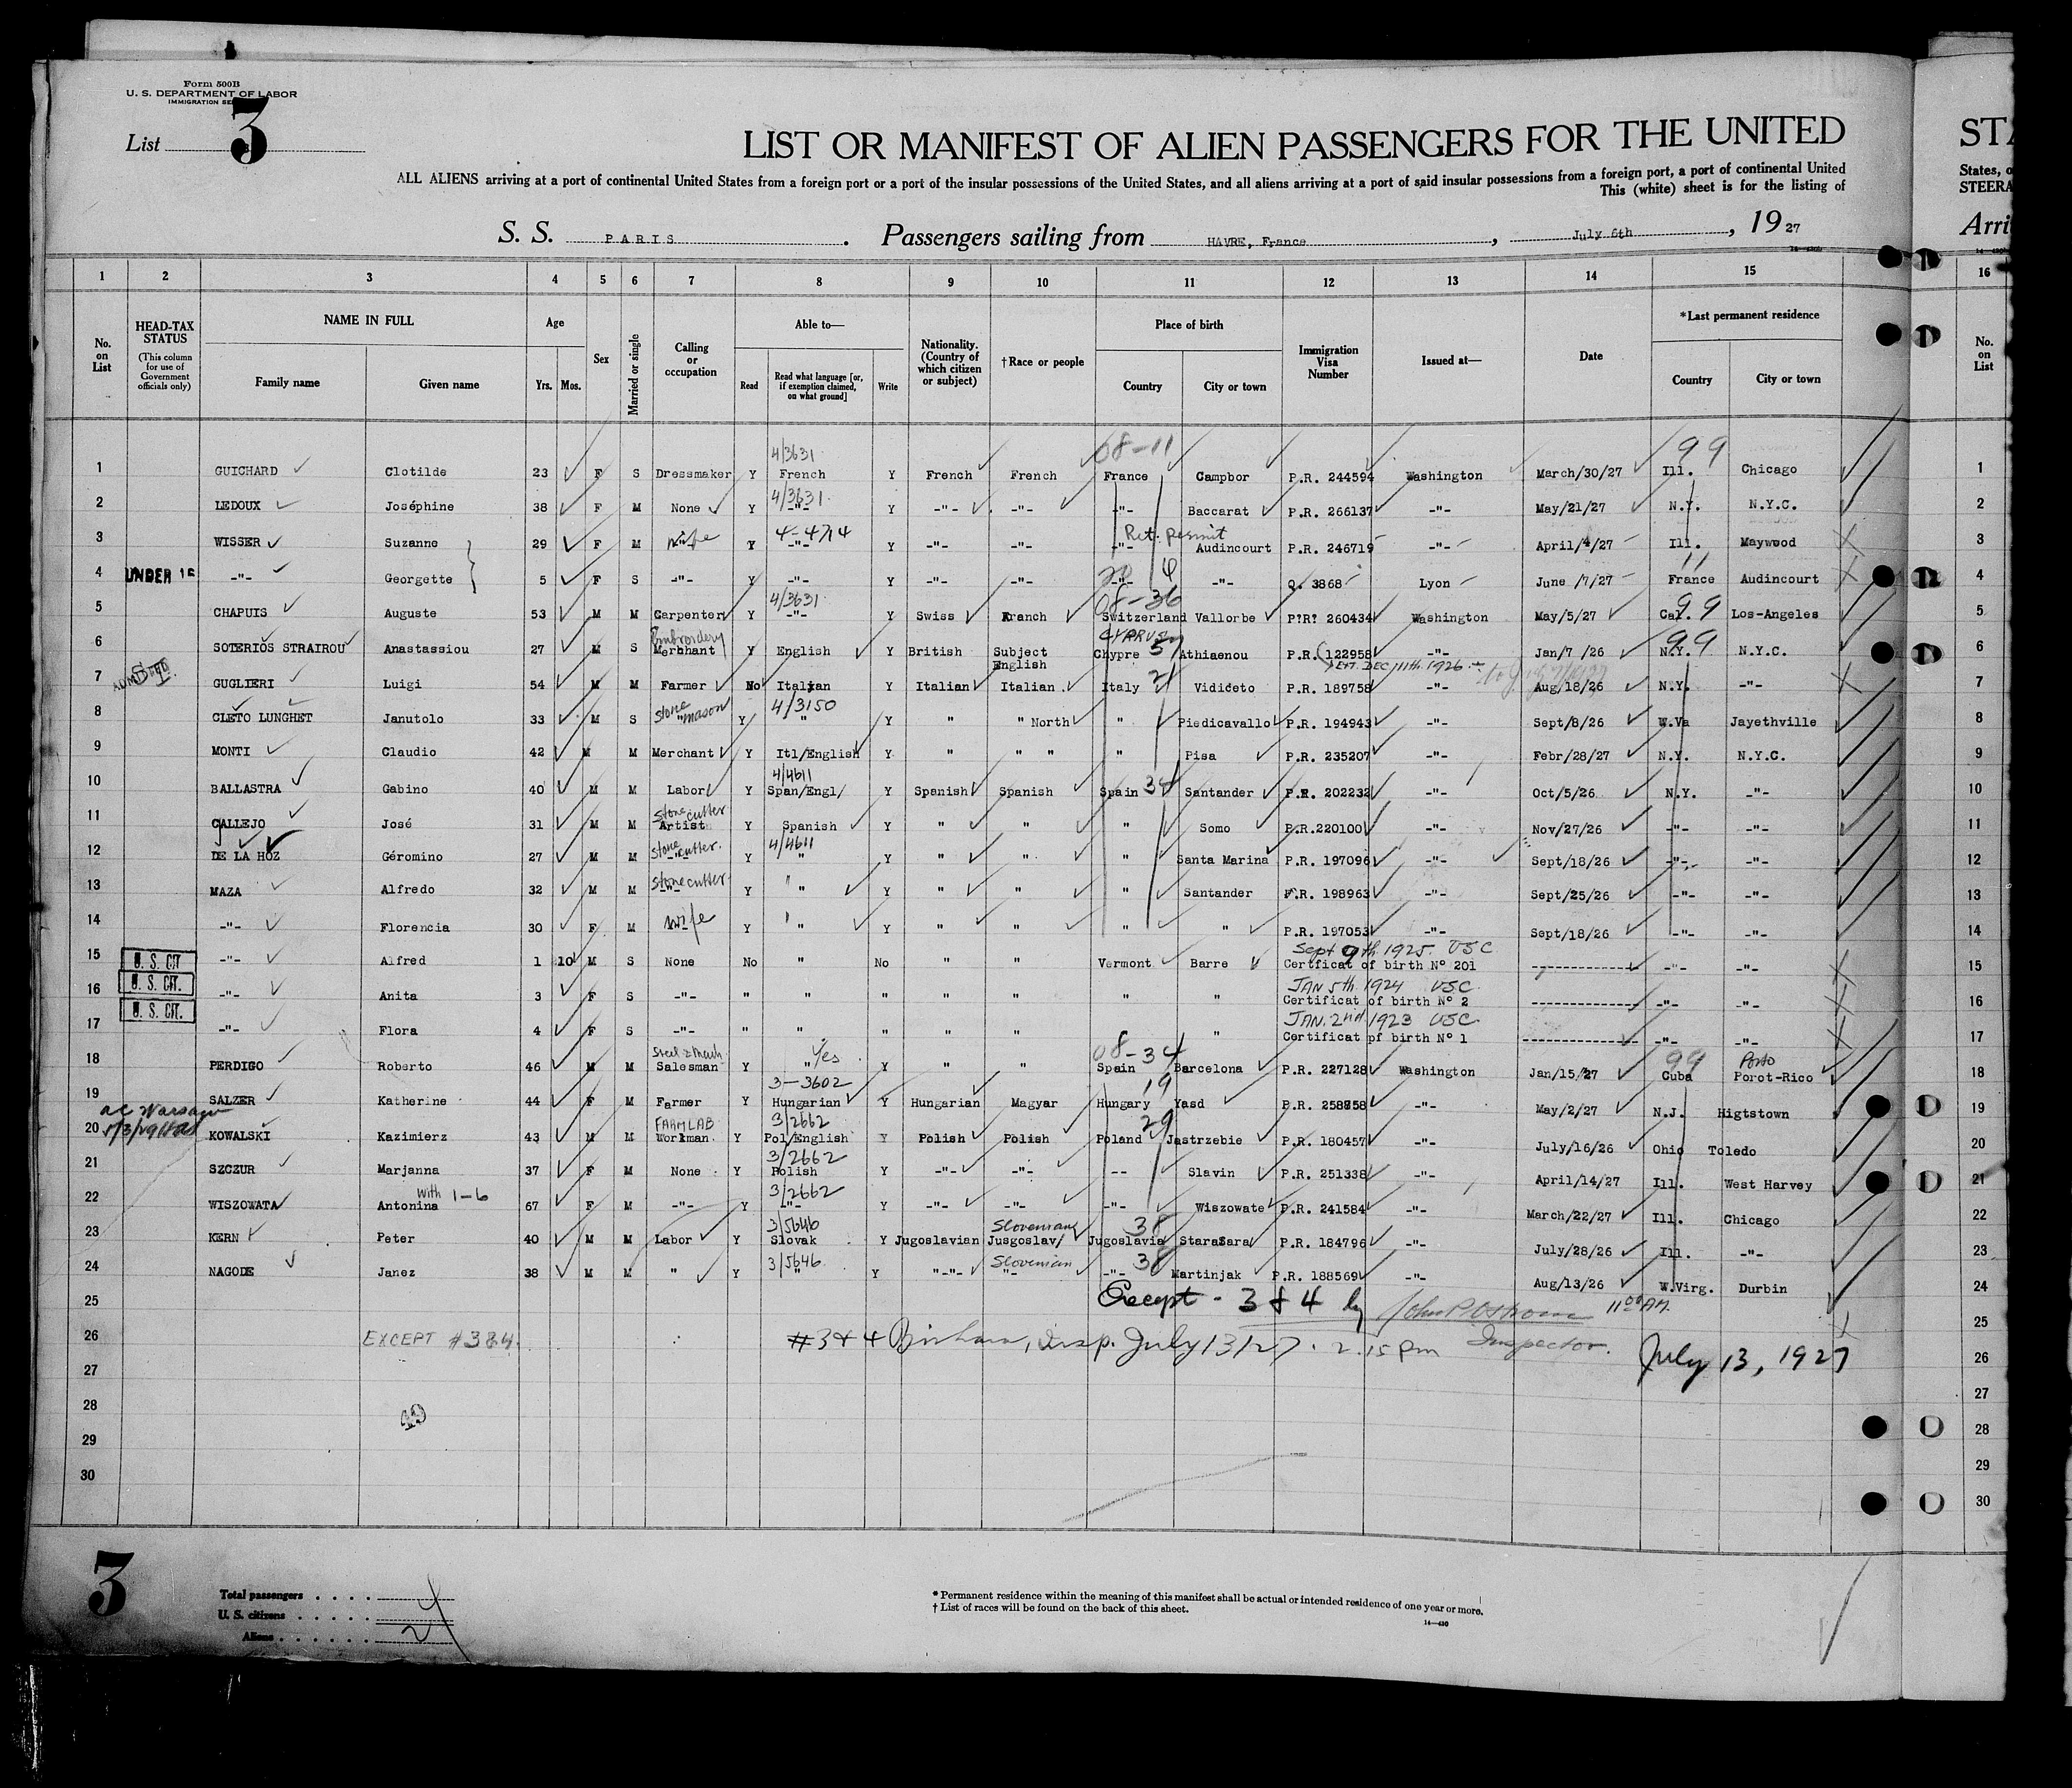 Form 500B
U. S. DEPARTMENT OF LABOR
IMMIGRATION
List 3
LIST OR MANIFEST OF ALIEN PASSENGERS FOR THE UNITED
ALL ALIENS arriving at a port of continental United States from a foreign port or a port of the insular possessions of the United States, and all aliens arriving at a port of said insular possessions from a foreign port, a port of continental United
This (white) sheet is for the listing of
S. S. PARIS. Passengers sailing from HAVRE, France, July 6th, 1927
STA
States, o
STEERA
Arri
1 2 3 4 5 6 7 8 9 10 11 12 13 14 15 16
No. on List HEAD-TAX STATUS (This column for use of Government officials only) NAME IN FULL Family name Given name Age Yrs. Mos. Sex Married or single Calling or occupation Able to— Read Read what language [or, if exemption claimed, on what ground] Write Nationality. (Country of which citizen or subject) †Race or people Place of birth Country City or town Immigration Visa Number Issued at— Date *Last permanent residence Country City or town No. on List
4/3631 08-11 99
1 GUICHARD Clotilde 23 F S Dressmaker Y French Y French French France Campbor P.R. 244594 Washington March/30/27 Ill. Chicago 1
4/3631
2 LEDOUX Joséphine 38 F M None Y -"- Y -"- -"- -"- Baccarat P.R. 266137 -"- May/21/27 N.Y. N.Y.C. 2
4-4714 Ret. Permit
3 WISSER Suzanne 29 F M wife Y -"- Y -"- -"- -"- Audincourt P.R. 246719 -"- April/4/27 Ill. Maywood 3
4 UNDER 16 -"- Georgette 5 F S -"- Y -"- Y -"- -"- -"- -"- Q. 3868 Lyon June /7/27 France Audincourt 4
4/3631 08-36 99
5 CHAPUIS Auguste 53 M M Carpenter Y -"- Y Swiss French Switzerland Vallorbe P?R? 260434 Washington May/5/27 Cal. Los-Angeles 5
Embroidery CYPRUS 99
6 SOTERIOS STRAIROU Anastassiou 27 M S Merchant Y English Y British Subject English Chypre Athiaenou P.R. 122958 Jan/7 /26 N.Y. N.Y.C. 6
EXT. DEC 11th. 1926
7 ADMITTED GUGLIERI Luigi 54 M M Farmer No Italian Y Italian Italian Italy 21 Vidiceto P.R. 189758 -"- Aug/18/26 N.Y. -"- 7
Stone mason 4/3150
8 CLETO LUNGHET Janutolo 33 M S " Y " Y " " North " Piedicavallo P.R. 194943 -"- Sept/8/26 W.Va Jayethville 8
9 MONTI Claudio 42 M M Merchant Y Itl/English Y " " " " Pisa P.R. 235207 -"- Febr/28/27 N.Y. N.Y.C. 9
4/4611
10 BALLASTRA Gabino 40 M M Labor Y Span/Engl/ Y Spanish Spanish Spain 34 Santander P.R. 202232 -"- Oct/5/26 N.Y. -"- 10
Stone cutter
11 CALLEJO José 31 M M Artist Y Spanish Y " " " Somo P.R.220100 -"- Nov/27/26 -"- -"- 11
Stone cutter. 4/4611
12 DE LA HOZ Géromino 27 M M -"- Y " Y " " " Santa Marina P.R. 197096 -"- Sept/18/26 -"- -"- 12
Stone cutter
13 MAZA Alfredo 32 M M -"- Y " Y " " " Santander P.R. 198963 -"- Sept/25/26 -"- -"- 13
14 -"- Florencia 30 F M wife Y " Y " " " " P.R. 197053 -"- Sept/18/26 -"- -"- 14
Sept 9th. 1925. USC
15 U. S. CIT -"- Alfred 1 10 M S None No " No " " Vermont Barre Certficat of birth N° 201 -"- -"- 15
JAN 5th. 1924 USC.
16 U. S. CIT. -"- Anita 3 F S -"- " " " " " " " Certificat of birth N° 2 -"- -"- 16
JAN. 2nd. 1923 USC.
17 U. S. CIT. -"- Flora 4 F S -"- " " " " " " Certificat pf birth N° 1 -"- -"- 17
Yes 08-34 99 Porto
18 PERDIGO Roberto 46 M M Salesman Y " Y " " Spain Barcelona P.R. 227128 Washington Jan/15/27 Cuba Porot-Rico 18
3-3602 19
19 SALZER Katherine 44 F M Farmer Y Hungarian Y Hungarian Magyar Hungary Yasd P.R. 258858 -"- May/2/27 N.J. Higtstown 19
FARM LAB 3/2662 29
20 KOWALSKI Kazimierz 43 M M Workman Y Pol/English Y Polish Polish Poland Jastrzebie P.R. 180457 -"- July/16/26 Ohio Toledo 20
3/2662
21 SZCZUR Marjanna 37 F M None Y Polish Y -"- -"- -- Slavin P.R. 251338 -"- April/14/27 Ill. West Harvey 21
with 1-6 3/2662
22 WISZOWATA Antonina 67 F M -"- Y -"- Y -"- -"- -"- Wiszowate P.R. 241584 -"- March/22/27 Ill. Chicago 22
3/5646 Slovenian 38
23 KERN Peter 40 M M Labor Y Slovak Y Jugoslavian Jusgoslav/ Jugoslavia StaraSara P.R. 184796 -"- July/28/26 Ill. -"- 23
3/5646 Slovenian 38
24 NAGODE Janez 38 M M " Y " Y "-"- "- -"- Martinjak P.R. 188569 -"- Aug/13/26 W.Virg. Durbin 24
25 Except - 3 & 4 by John P. Ostrom 11 00 AM. 25
Inspector.
26 EXCEPT #3&4. #3 & 4 insp. July 13/27. 2.15 pm July 13, 1927 26
27 27
28 28
29 29
30 30
3
Total passengers
U. S. citizens
Aliens
* Permanent residence within the meaning of this manifest shall be actual or intended residence of one year or more.
† List of races will be found on the back of this sheet.
14—430